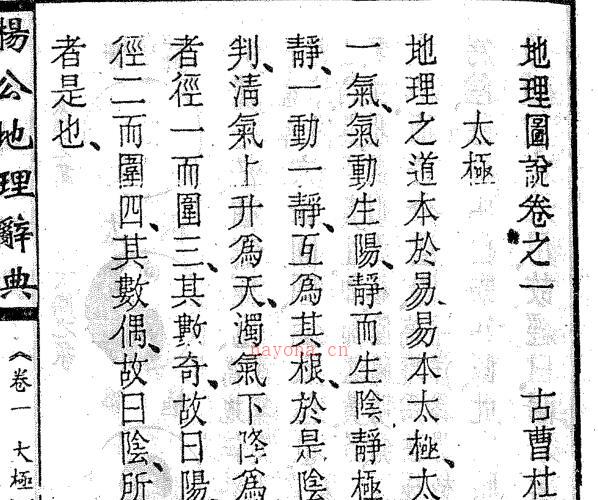 地理圖說卷之一 古曹杜
太極
地理之道本於易易本太極、太
一氣、氣動生陽、靜而生陰靜極
靜、一動一靜、互為其根、於是陰
判、清氣上升為天、濁氣下降為
者徑一而圍三、其數奇、故曰陽
徑二而圍四、其數偶、故曰陰、所
者是也、
楊公地理辭典
《卷一 太極
nayona.cn